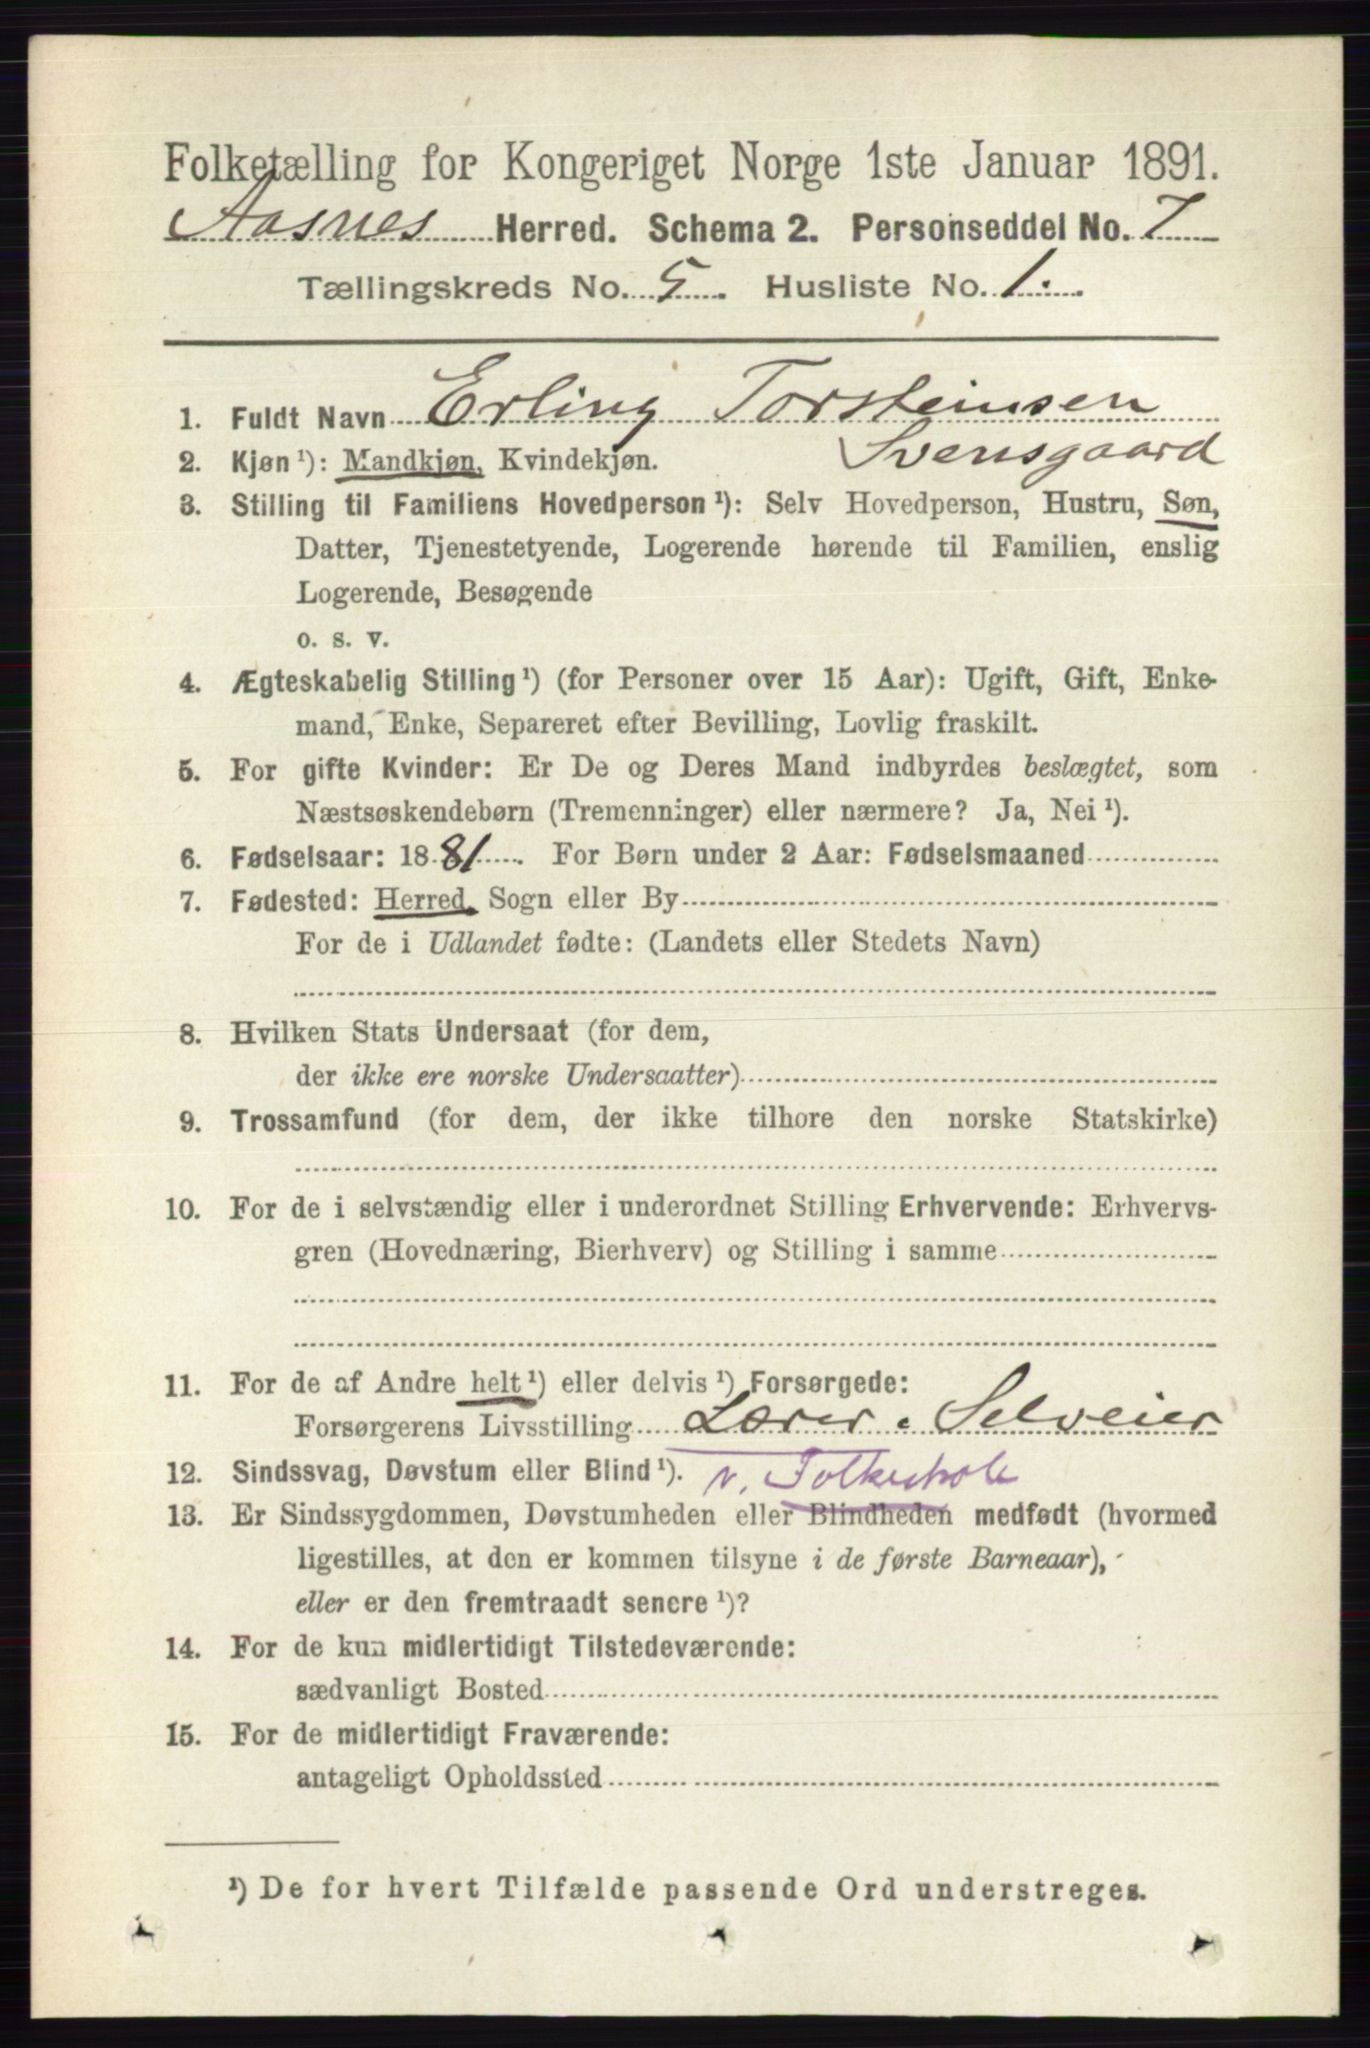 Folketælling for Kongeriget Norge 1ste Januar 1891.
Aasnes Herred. Schema 2. Personseddel No. 7
Tællingskreds No. 5. Husliste No. 1.
1. Fuldt Navn Erling Torsteinsen
Svensgaard
2. Kjøn ¹): Mandkjøn, Kvindekjøn.
3. Stilling til Familiens Hovedperson ¹): Selv Hovedperson, Hustru, Søn,
Datter, Tjenestetyende, Logerende hørende til Familien, enslig
Logerende, Besøgende
o. s. v.
4. Ægteskabelig Stilling ¹) (for Personer over 15 Aar): Ugift, Gift, Enke-
mand, Enke, Separeret efter Bevilling, Lovlig fraskilt.
5. For gifte Kvinder: Er De og Deres Mand indbyrdes beslægtet, som
Næstsøskendebørn (Tremenninger) eller nærmere? Ja, Nei ¹).
6. Fødselsaar: 1881. For Børn under 2 Aar: Fødselsmaaned
7. Fødested: Herred, Sogn eller By
For de i Udlandet fødte: (Landets eller Stedets Navn)
8. Hvilken Stats Undersaat (for dem,
der ikke ere norske Undersaatter)
9. Trossamfund (for dem, der ikke tilhore den norske Statskirke)
10. For de i selvstændig eller i underordnet Stilling Erhvervende: Erhvervs-
gren (Hovednæring, Bierhverv) og Stilling i samme
11. For de af Andre helt ¹) eller delvis ¹) Forsørgede:
Forsørgerens Livsstilling Lærer. Selveier
12. Sindssvag, Døvstum eller Blind ¹). v. Folkeskole
13. Er Sindssygdommen, Døvstumheden eller Blindheden medfødt (hvormed
ligestilles, at den er kommen tilsyne i de første Barneaar),
eller er den fremtraadt senere ¹)?
14. For de kun midlertidigt Tilstedeværende:
sædvanligt Bosted
15. For de midlertidigt Fraværende:
antageligt Opholdssted
¹) De for hvert Tilfælde passende Ord understreges.